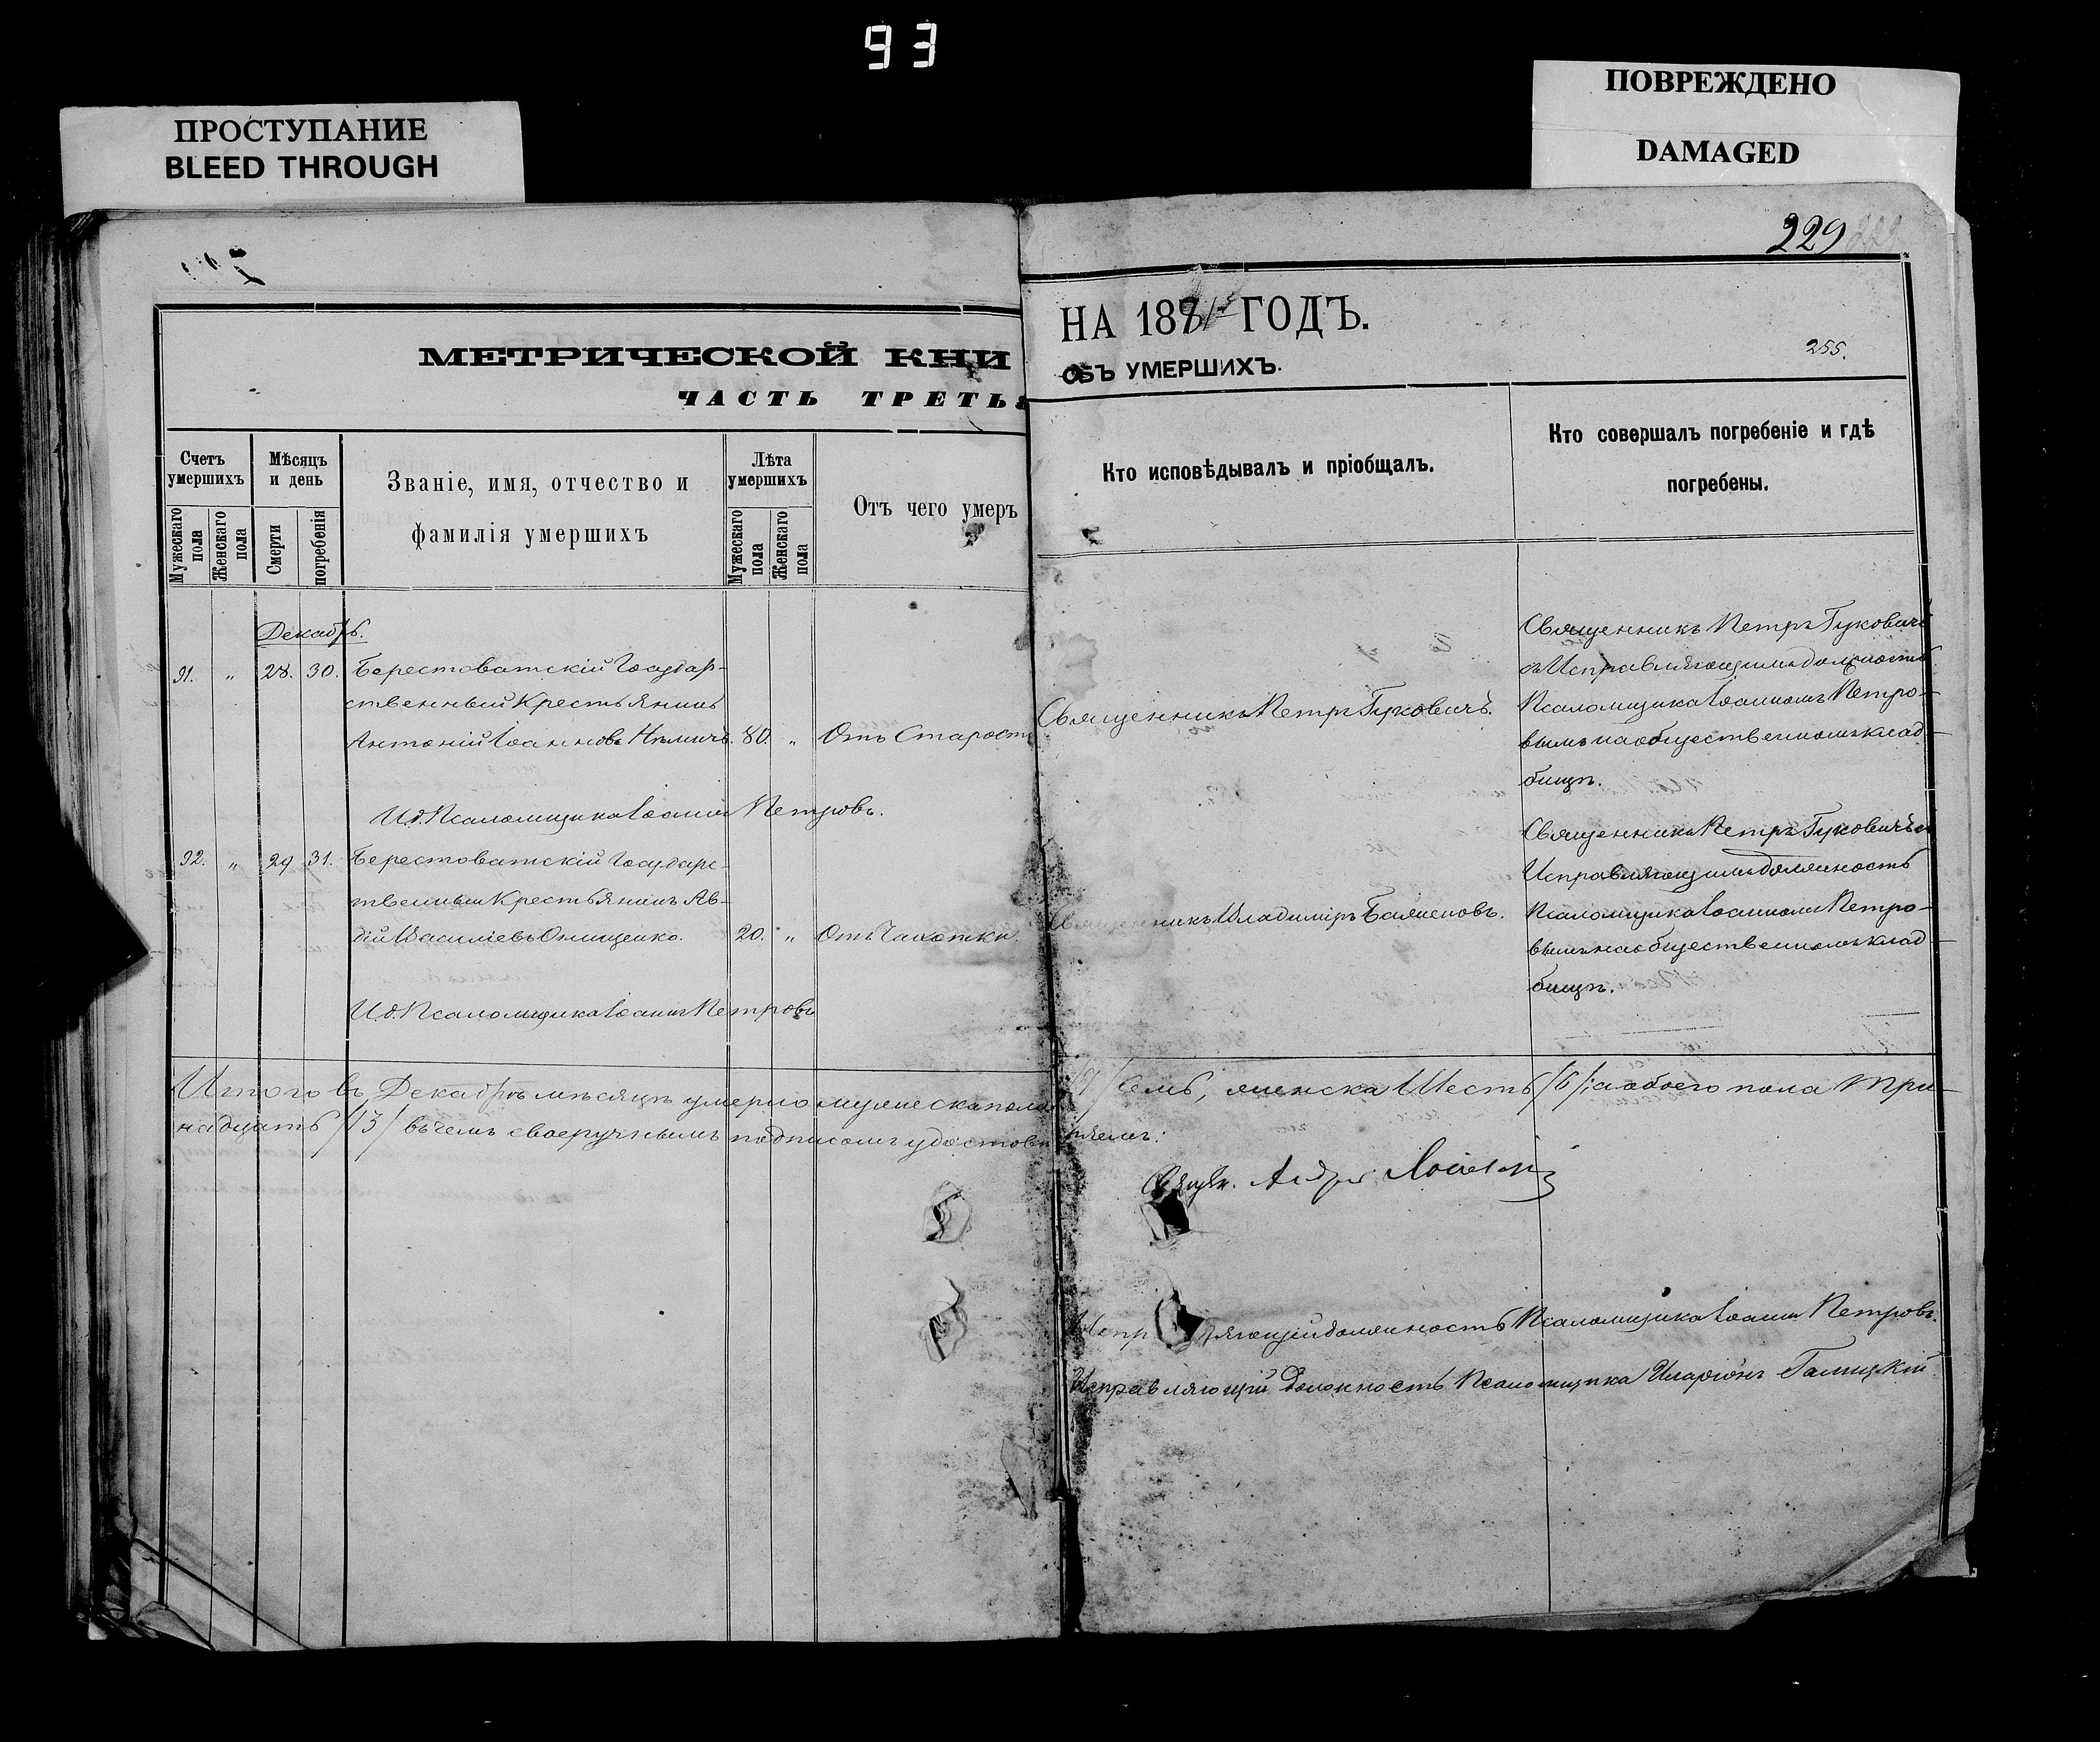 93
ПРОСТУПАНИЕ
BLEED THROUGH
ПОВРЕЖДЕНО
DAMAGED
229
МЕТРИЧЕСКОЙ КНИ
ЧАСТЬ ТРЕТЬЯ
НА 1881 ГОДЪ.
ОБЪ УМЕРШИХЪ.
255.
Счетъ умершихъ
Мужескаго пола
Женскаго пола
Мѣсяцъ и день
Смерти
погребенія
Званіе, имя, отчество и
фамилія умершихъ
Лѣта умершихъ
Мужескаго пола
Женскаго пола
Отъ чего умеръ
Кто исповѣдывалъ и пріобщалъ.
Кто совершалъ погребеніе и гдѣ
погребены.
Декабрь.
91. " 28. 30. Берестоватскій Государ-
ственный Крестьянинъ
Антоній Іоанновъ Нѣмичъ. 80. " Отъ Старости
Священникъ Петръ Гуковичъ.
Священникъ Петръ Гуковичъ
съ Исправляющимъ должность
Псаломщика Іоанномъ Петро-
вымъ на общественномъ клад-
бищѣ.
И.д. Псаломщика Іоаннъ Петровъ.
92. " 29 31. Берестоватскій Государс-
твенный Крестьянинъ Ав-
дій Василіевъ Онищенко. 20. " Отъ Чахотки.
Священникъ Владиміръ Баженовъ.
Священникъ Петръ Гуковичъ съ
Исправляющимъ должность
Псаломщика Іоанномъ Петро-
вымъ на общественномъ клад-
бищѣ.
И.д. Псаломщика Іоаннъ Петровъ
Итого въ Декабрѣ мѣсяцѣ умерло мужеска пола /7/ Семь, женска Шесть /6/; а обоего пола три-
надцать /13/ въ чемъ своеручнымъ подписомъ удостовѣряемъ:
Священ. Андрей
Исправляющій должность Псаломщика Іоаннъ Петровъ.
Исправляющій должность Псаломщика Иларіонъ Галицкій